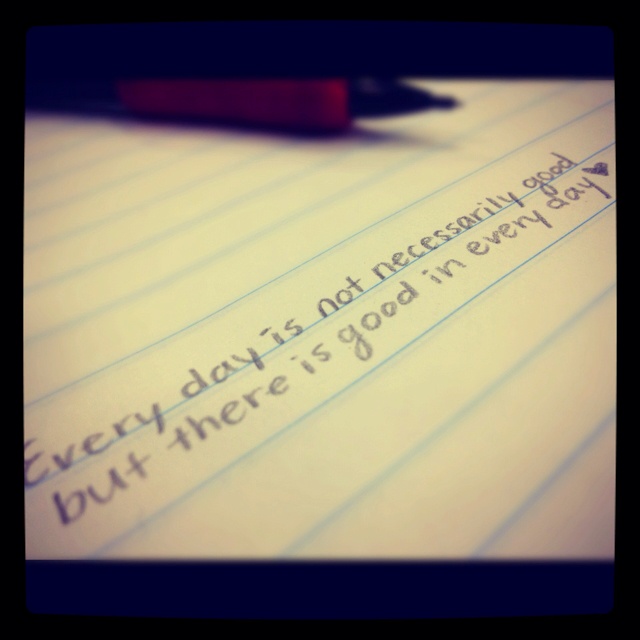 Every day is not necessarily good
but there is good in every day♥